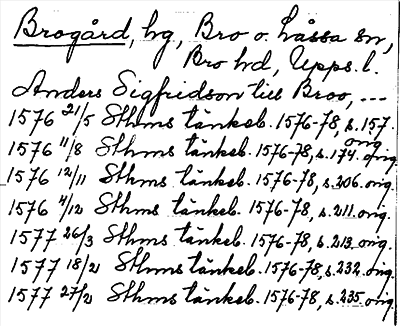 Brogård, hg, Bro o. Låssa sn,
Bro hd, Upps. l.
Anders Sigfridson till Broo, ...
1576 21/5 Sthms tänkeb. 1576-78, s. 157.
orig.
1576 11/8 Sthms tänkeb. 1576-78, s. 174. orig.
1576 12/11 Sthms tänkeb. 1576-78, s. 206. orig.
1576 4/12 Sthms tänkeb. 1576-78, s. 211. orig.
1577 26/3 Sthms tänkeb. 1576-78, s. 213. orig.
1577 18/2 Sthms tänkeb. 1576-78, s. 232. orig.
1577 27/2 Sthms tänkeb. 1576-78, s. 235. orig.